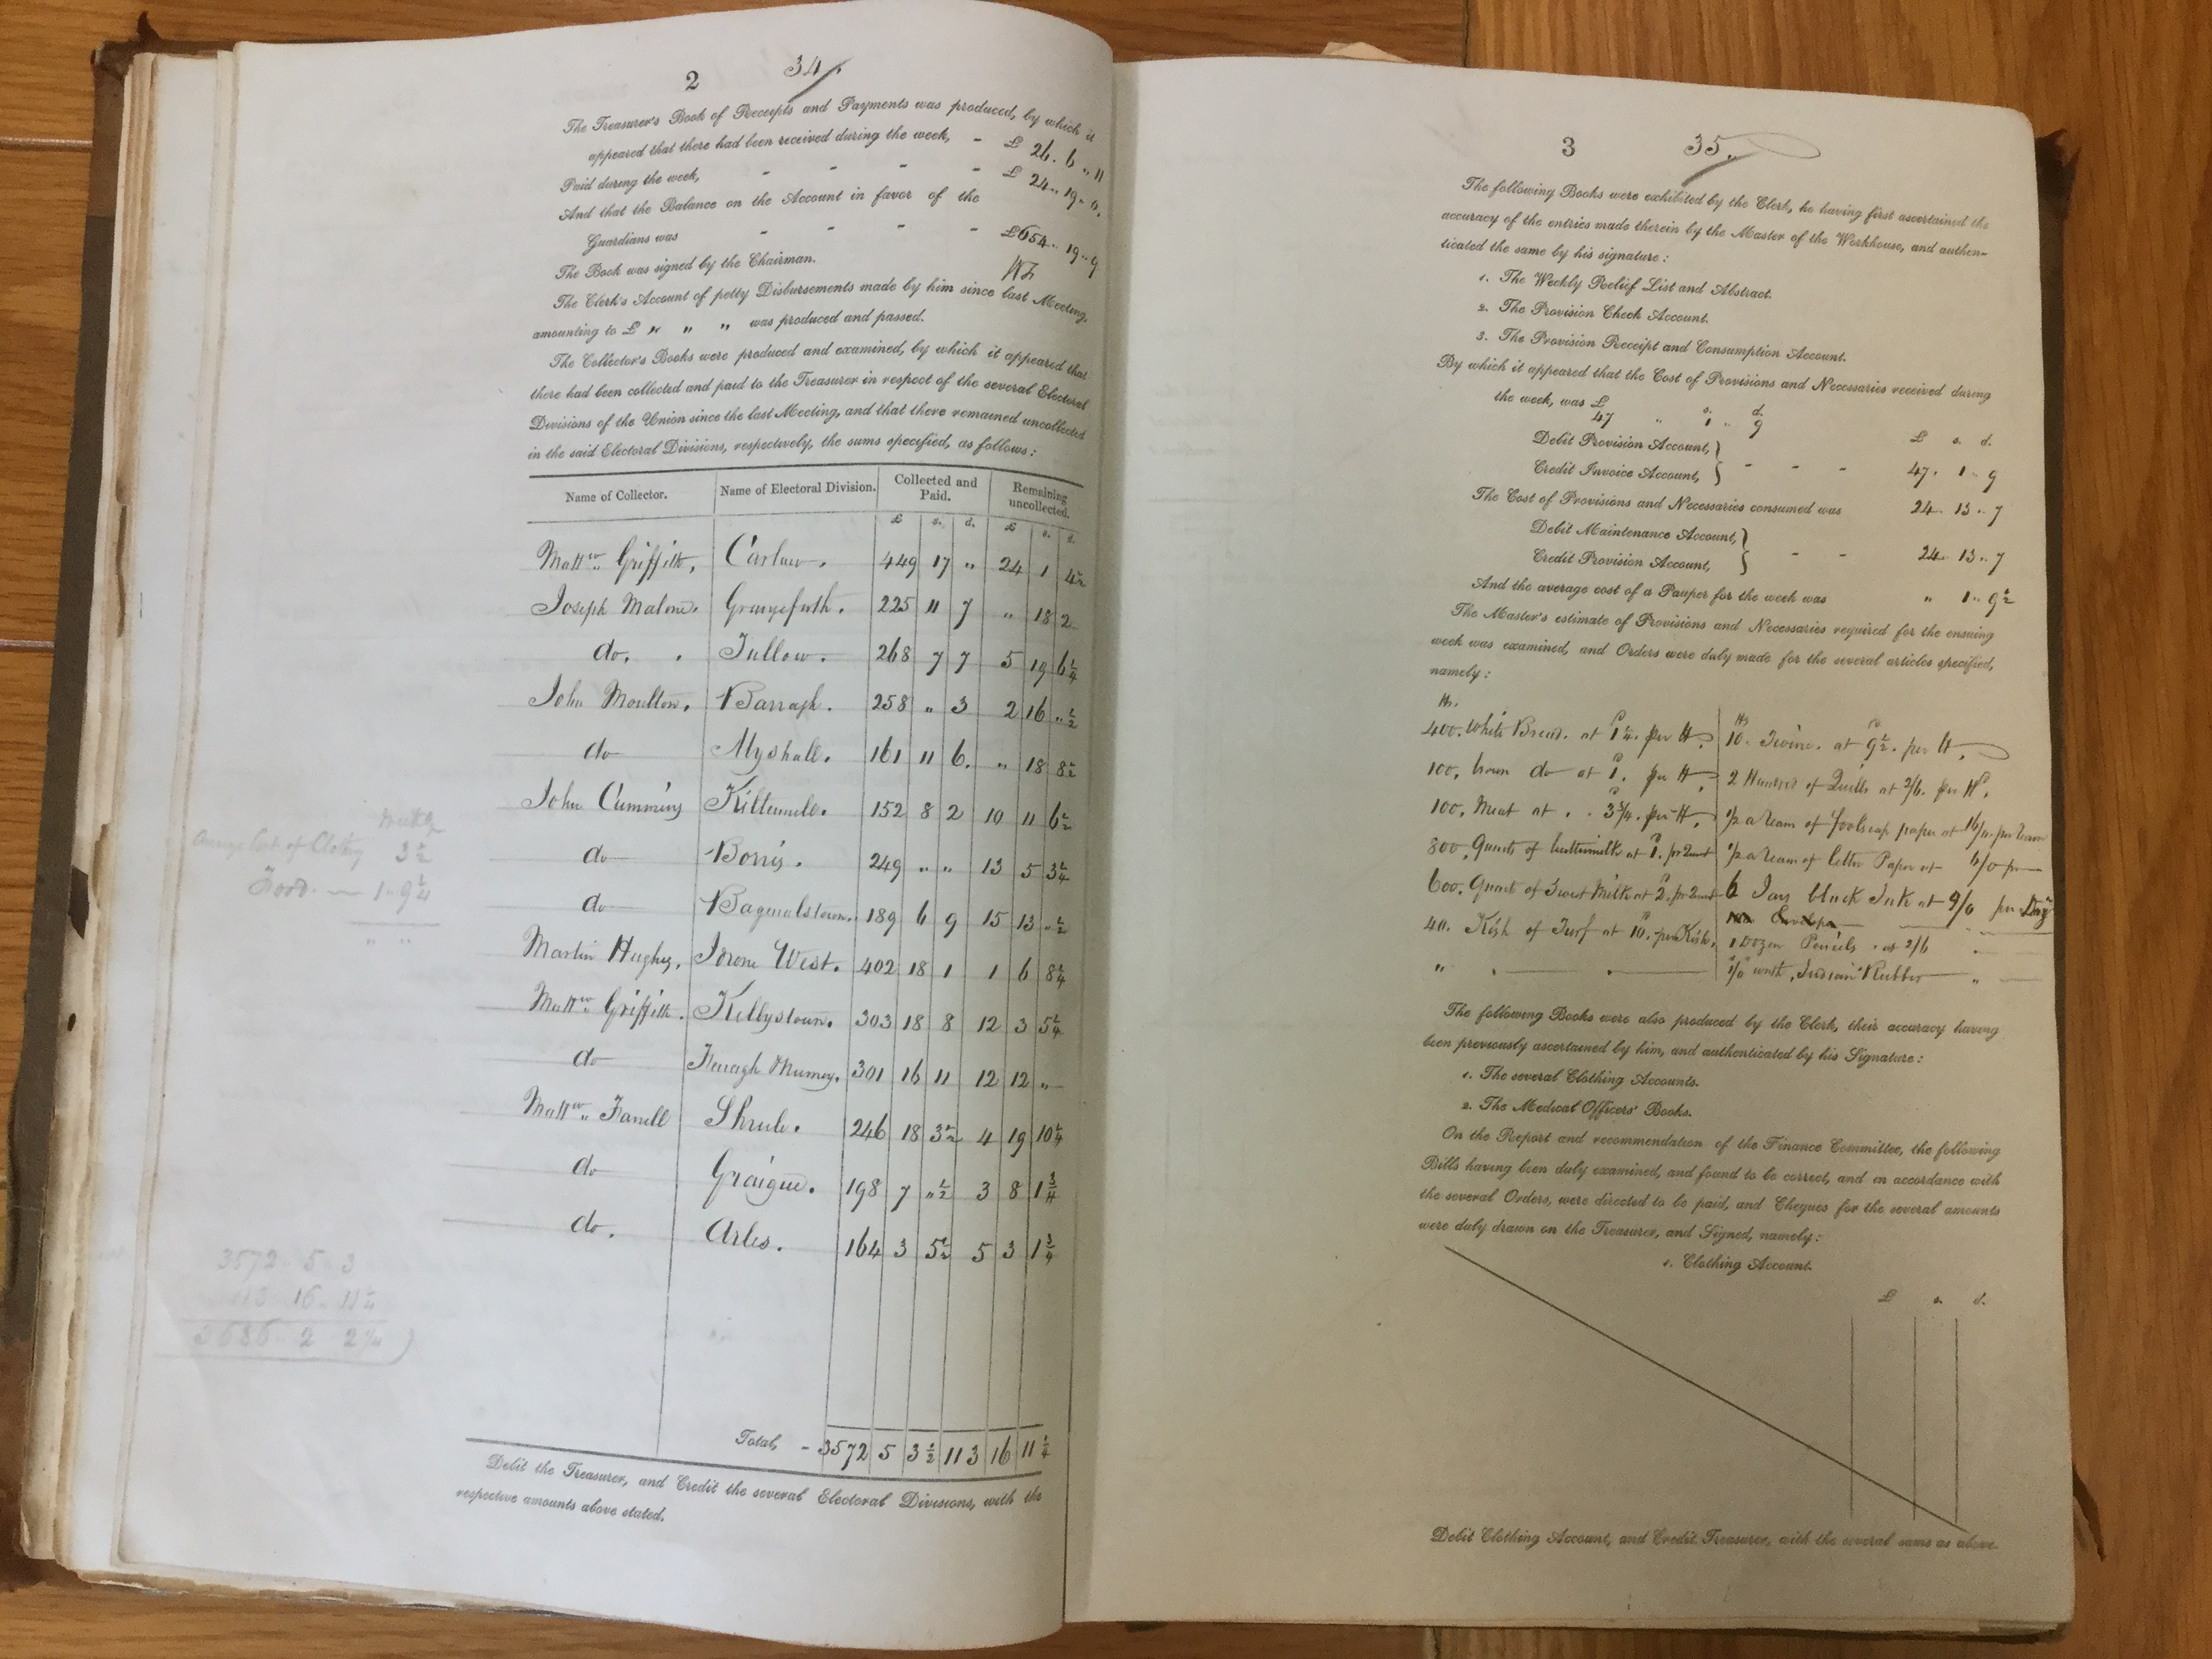 2 34
The Treasurer's Book of Receipts and Payments was produced, by which it
appeared that there had been received during the week, - £ 26. 6 .. 11
Paid during the week, - - - - £ 24.. 19..
And that the Balance on the Account in favor of the
Guardians was - - - - £654.. 19.. 9
The Book was signed by the Chairman.
The Clerk's Account of petty Disbursements made by him since last Meeting,
amounting to £ " " " was produced and passed.
The Collector's Books were produced and examined, by which it appeared that
there had been collected and paid to the Treasurer in respect of the several Electoral
Divisions of the Union since the last Meeting, and that there remained uncollected
in the said Electoral Divisions, respectively, the sums specified, as follows:
Name of Collector. Name of Electoral Division. Collected and Paid. Remaining uncollected.
£ s. d. £ s. d.
Mattw. Griffith, Carlow. 449 17 " 24 1 4½
Joseph Malone. Grangeforth. 225 11 7 " 18 2
do. Tullow. 268 7 7 5 19 6¼
John Moulton. Barragh. 258 " 3 2 16 "½
do Myshall. 161 11 6. " 18 8½
John Cummins Kiltennell. 152 8 2 10 11 6½
do Borris. 249 " " 13 5 3¼
do Bagenalstown. 189 6 9 15 13 "½
Martin Hughes, Idrone West. 402 18 1 1 6 8¼
Mattw. Griffith. Kellystown. 303 18 8 12 3 5¼
do Fenagh 301 16 11 12 12 "
Mattw. Farrell Shrule. 246 18 3½ 4 19 10¼
do Graigue. 198 7 "½ 3 8 1¾
do. Arles. 164 3 5½ 5 3 1¾
Total, - 3572 5 3½ 113 16 11¼
Debit the Treasurer, and Credit the several Electoral Divisions, with the
respective amounts above stated.
Average Cost of Clothg 3½
Food - 1.. 9¼
3572 5 3
113 16 11¼
3686 2 2¼
3 35
The following Books were exhibited by the Clerk, he having first ascertained the
accuracy of the entries made therein by the Master of the Workhouse, and authen-
ticated the same by his signature:
1. The Weekly Relief List and Abstract.
2. The Provision Check Account.
3. The Provision Receipt and Consumption Account.
By which it appeared that the Cost of Provisions and Necessaries received during
the week, was £ s. d.
47 " 1 .. 9
Debit Provision Account, £ s. d.
Credit Invoice Account, - - - 47. 1 9
The Cost of Provisions and Necessaries consumed was 24. 13.. 7
Debit Maintenance Account,
Credit Provision Account, - - 24. 13.. 7
And the average cost of a Pauper for the week was " 1.. 9½
The Master's estimate of Provisions and Necessaries required for the ensuing
week was examined, and Orders were duly made for the several articles specified,
namely:
400. White Bread. at 1¼. per lb. 10. Twine. at 9½. per lb.
100, brown do at 1. per lb. 2 Hundred of Quills at 2/6. per Hd.
100. Meat at . . 3¾. per lb. ½ a ream of foolscap paper at 16/0. per ream
800. Quarts of buttermilk at 1. pr Quart ½ a ream of letter Paper at
600. Quarts of Sweet Milk at 2. pr Quart 6 Jars black Ink at 9/0 per Doz
40. Kish of Turf at 10. per Kish. 1 Dozen Pencils. at 2/6
1/0 worth Indian Rubber
The following Books were also produced by the Clerk, their accuracy having
been previously ascertained by him, and authenticated by his Signature:
1. The several Clothing Accounts.
2. The Medical Officers' Books.
On the Report and recommendation of the Finance Committee, the following
Bills having been duly examined, and found to be correct, and in accordance with
the several Orders, were directed to be paid, and Cheques for the several amounts
were duly drawn on the Treasurer, and Signed, namely:
1. Clothing Account.
£ s. d.
Debit Clothing Account, and Credit Treasurer, with the several sums as above.